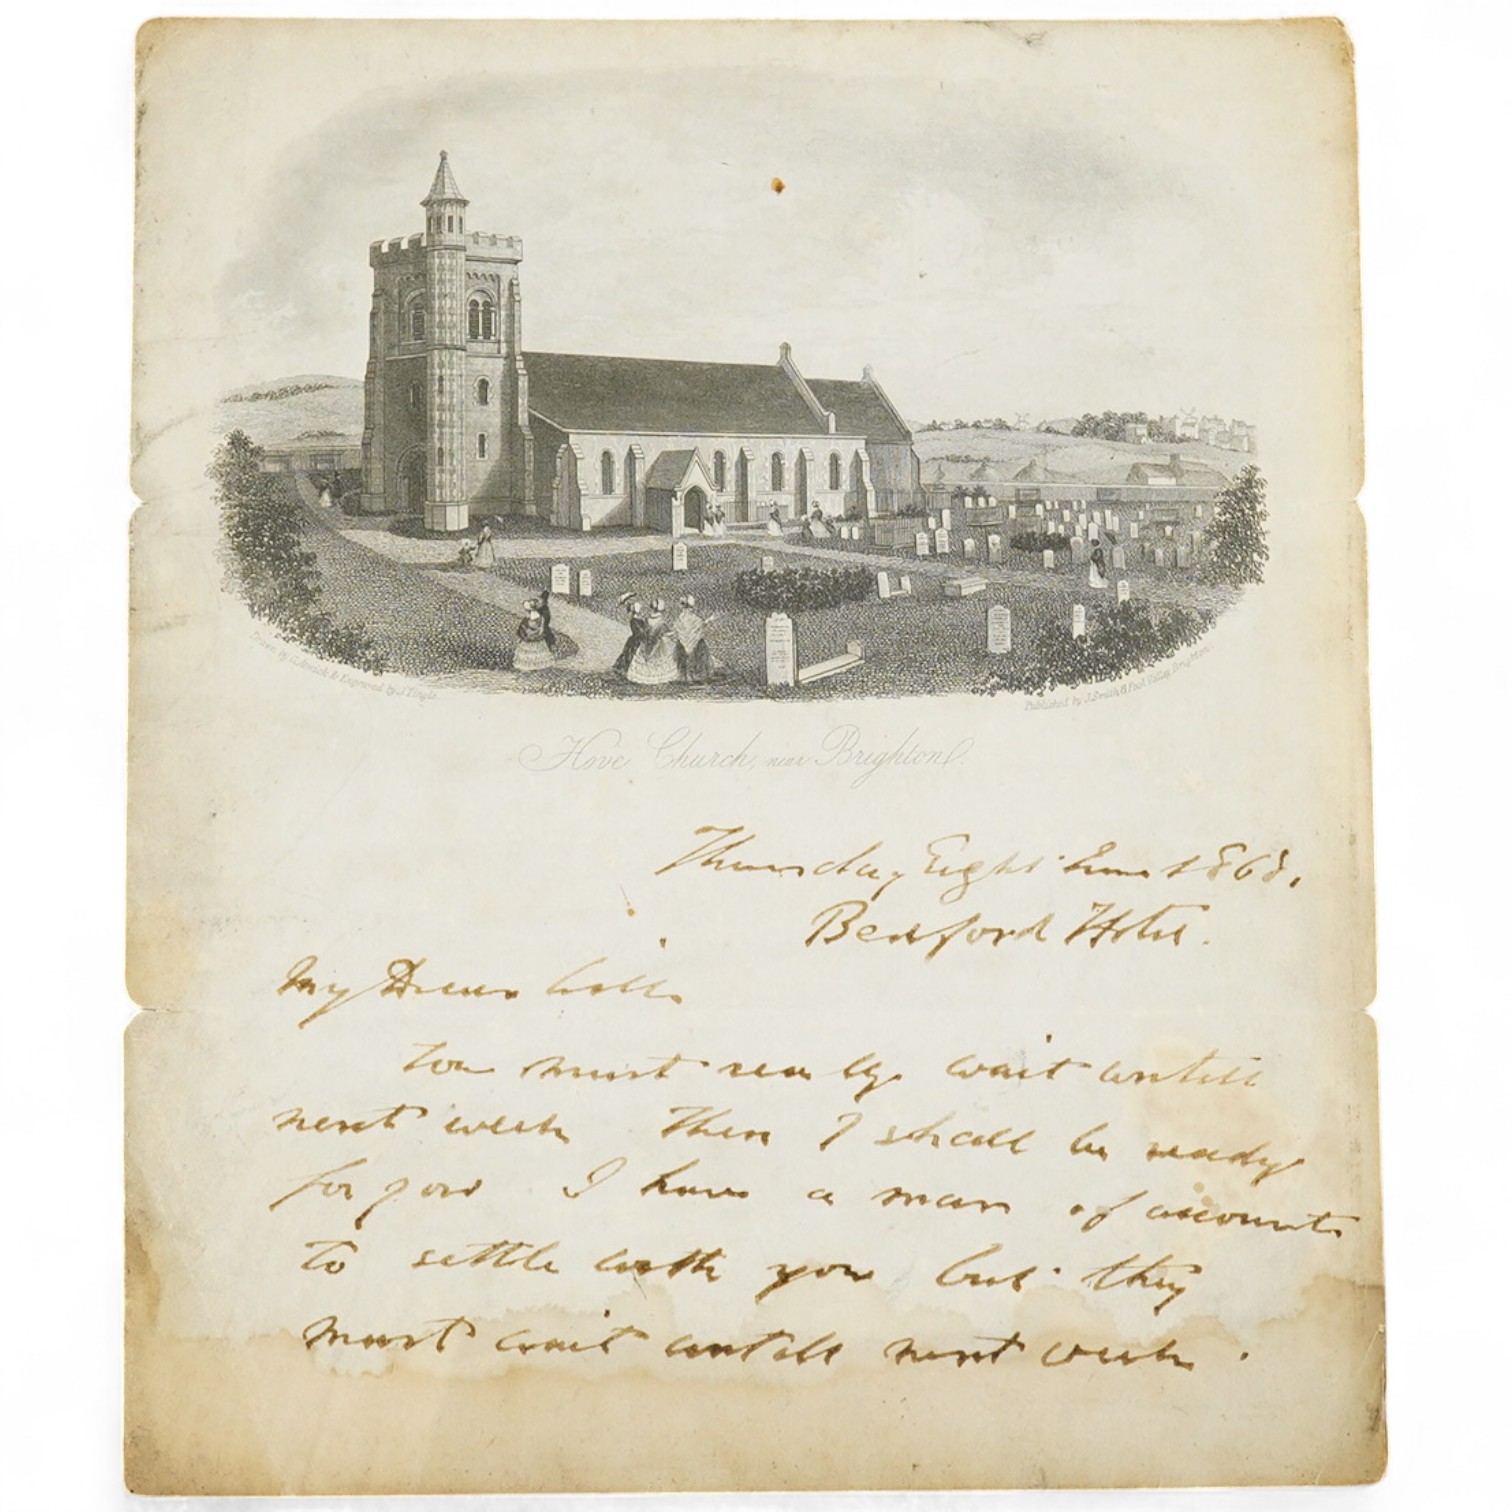 Drawn by G. & Engraved by J. Tingle.
Published by J. Smith & Paul Valley, Brighton.
Hove Church, near Brighton.
Thursday Eight June 1868.
Bedford Hotel.
My Dear
You must really wait untill
next week Then I shall be ready
for you I have a man of accounts
to settle with you but they
must wait untill next week.